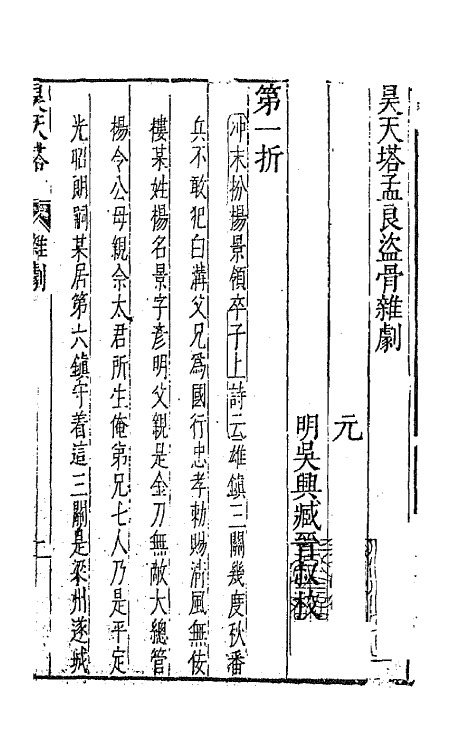 昊天塔孟良盜骨雜劇
元
明吳興臧晉叔校
第一折
沖末扮楊景領卒子上詩云雄鎮三關幾度秋番
兵不敢犯白溝父兄爲國行忠孝勅賜淸風無佞
樓某姓楊名景字彥明父親是金刀無敵大總管
楊令公母親佘太君所生俺弟兄七人乃是平定
光昭朗嗣某居第六鎮守着這三關是梁州遂城
昊天塔 雜劇 一